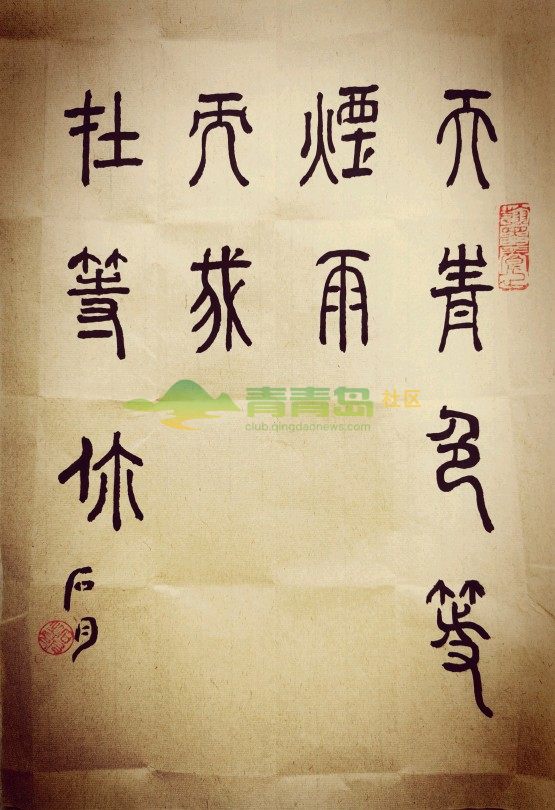 天青色等
煙雨
而我
在等你
石月
青青岛社区
club.qingdaonews.com